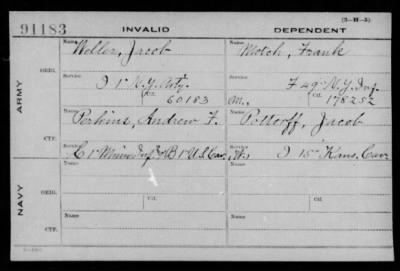 (3-H-5)
91183 INVALID DEPENDENT
Name Weller, Jacob
Name Motch, Frank
ARMY
ORIG.
Service I 1" N.Y. Arty.
Ctf. 60183
Service F 49" N.Y. Inf.
M., Ctf. 178252
CTF.
Name Perkins, Andrew F.
Name Pottorff, Jacob
Service C 1" Minn Inf & B 1" U.S. Cav.
Service I 15" Kans. Cav.
NAVY
ORIG.
Name
Name
Service
Ctf.
Service
Ctf.
CTF.
Name
Name